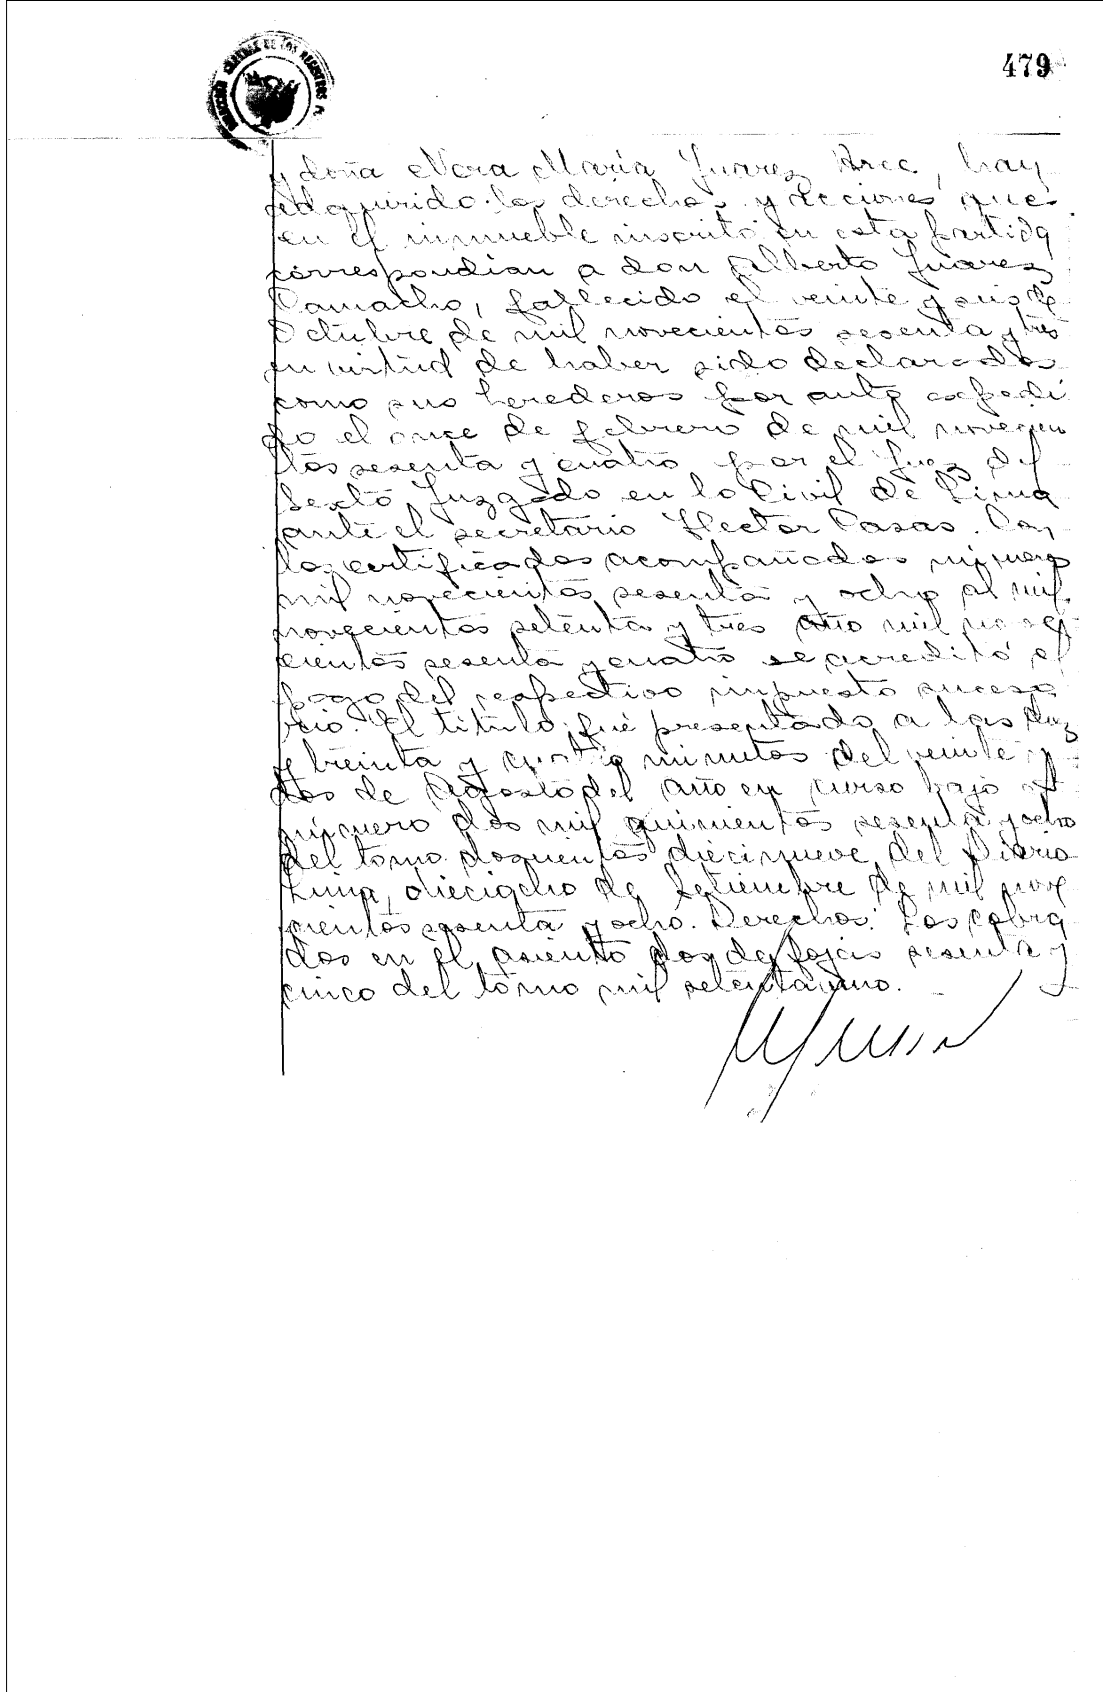 479
y doña Nora María Juarez Arce, han
adquirido los derechos y acciones que
en el inmueble inscrito en esta partida
correspondian a don Alberto Juarez
Camacho, fallecido el veinte y seis de
Octubre de mil novecientos sesenta y tres
en virtud de haber sido declarados
como sus herederos por auto expedi
do el once de febrero de mil novecien
tos sesenta y cuatro por el Juez del
Sexto Juzgado en lo Civil de Lima
ante el secretario Hector Casas. Con
los certificados acompañados número
mil novecientos sesenta y ocho al mil
novecientos setenta y tres año mil nove
cientos sesenta y cuatro se acreditó el
pago del respectivo impuesto suceso
rio. El título fué presentado a las diez
y treinta y cuatro minutos del veinte y
dos de Agosto del año en curso bajo el
número dos mil quinientos sesenta y ocho
del tomo doscientos diecinueve del Diario
Lima, dieciocho de Setiembre de mil nove
cientos sesenta y ocho. Derechos: Los cobra
dos en el asiento dos de fojas sesenta y
cinco del tomo mil setentauno.